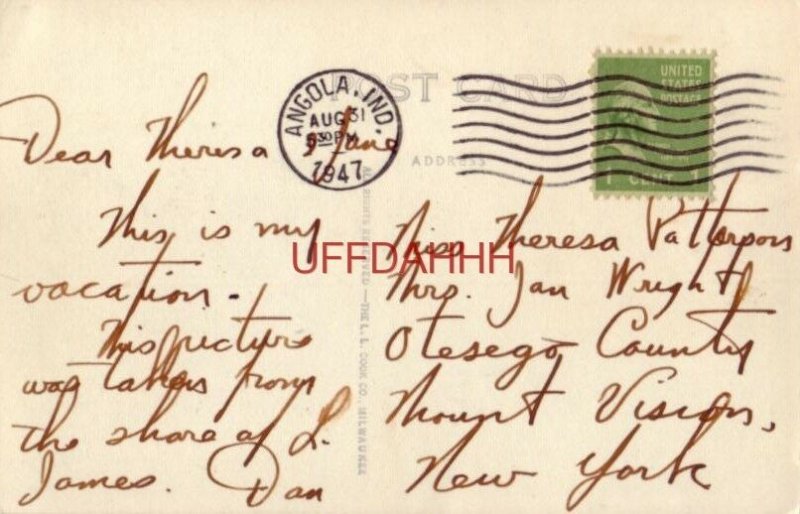 POST CARD
ANGOLA, IND.
AUG 31
530 PM
1947
UNITED
STATES
POSTAGE
1 CENT 1
ADDRESS
Dear Theresa & Jane
This is my
vacation.
This picture
was taken from
the shore of L.
James. Dan
Miss Theresa Patterson
Mrs. Jan Wright
Otesego County
Mount Vision,
New York
ALL RIGHTS RESERVED—THE L. L. COOK CO., MILWAUKEE
UFFDAHHH